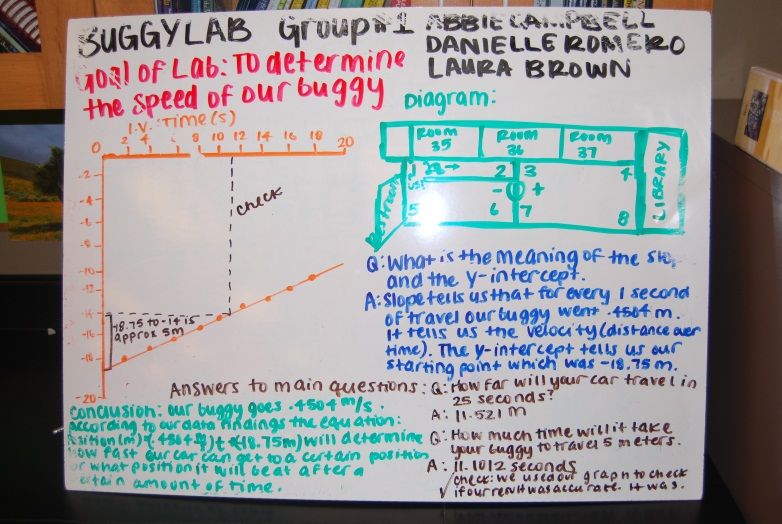 BUGGYLAB Group#1 ABBIE CAMPBELL
DANIELLE ROMERO
LAURA BROWN
Goal of Lab: To determine
the speed of our buggy
I.V. Time(s)
0 2 4 6 8 10 12 14 16 18 20
-2
-4
-6
-8
-10
-12
-14
-16
-18
-20
check
18.75 to -14 is
approx 5m
Diagram:
ROOM 35
ROOM 36
ROOM 37
LIBRARY
1 2 3 4
- 0 +
5 6 7 8
Q: What is the meaning of the
and the y-intercept.
A: Slope tells us that for every 1 second
of travel our buggy went .4504 m.
It tells us the velocity (distance over
time). The y-intercept tells us our
starting point which was -18.75 m.
Answers to main questions:
Q: How far will your car travel in
25 seconds?
A: 11.521 m
Q: How much time will it take
your buggy to travel 5 meters.
A: 11.1012 seconds
check: we used our graph to check
if our result was accurate. It was.
Conclusion: our buggy goes .4504 m/s.
according to our data findings the equation:
will determine
how fast our car can get to a certain position
or what position it will be at after a
certain amount of time.